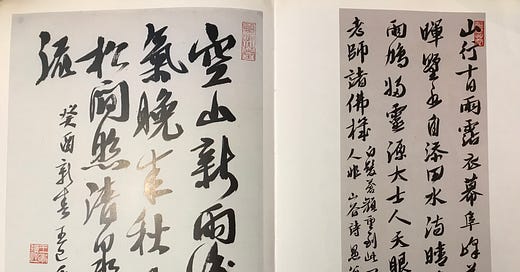 山行十日雨霑衣幕阜峰前
暉野水自添田水滿晴
雨鳩歸靈源大士人天眼
老師諸佛機白髮蒼顏重到此
人非山谷詩
空山新雨後
氣晚來秋
松間照清泉
流
癸酉新春